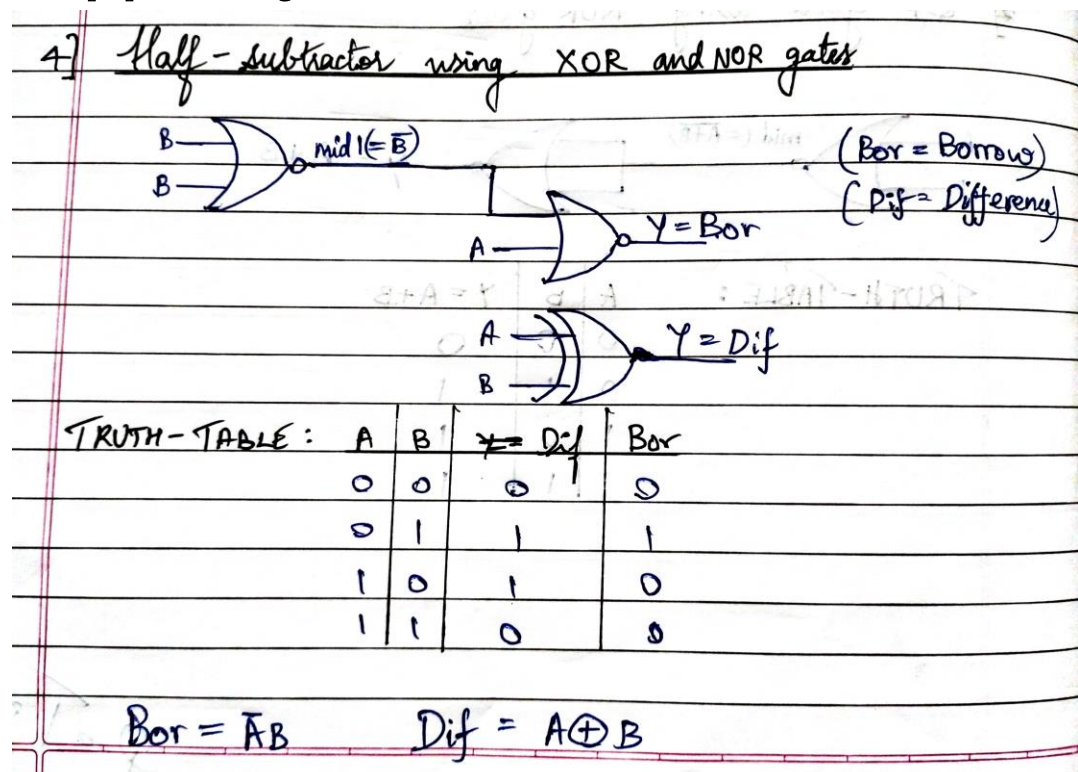 4] Half-subtractor using XOR and NOR gates
B mid1(=B̅)
B
(Bor = Borrow)
(Dif = Difference)
A Y = Bor
A Y = Dif
B
TRUTH-TABLE: A B Dif Bor
0 0 0 0
0 1 1 1
1 0 1 0
1 1 0 0
Bor = A̅B Dif = A⊕B